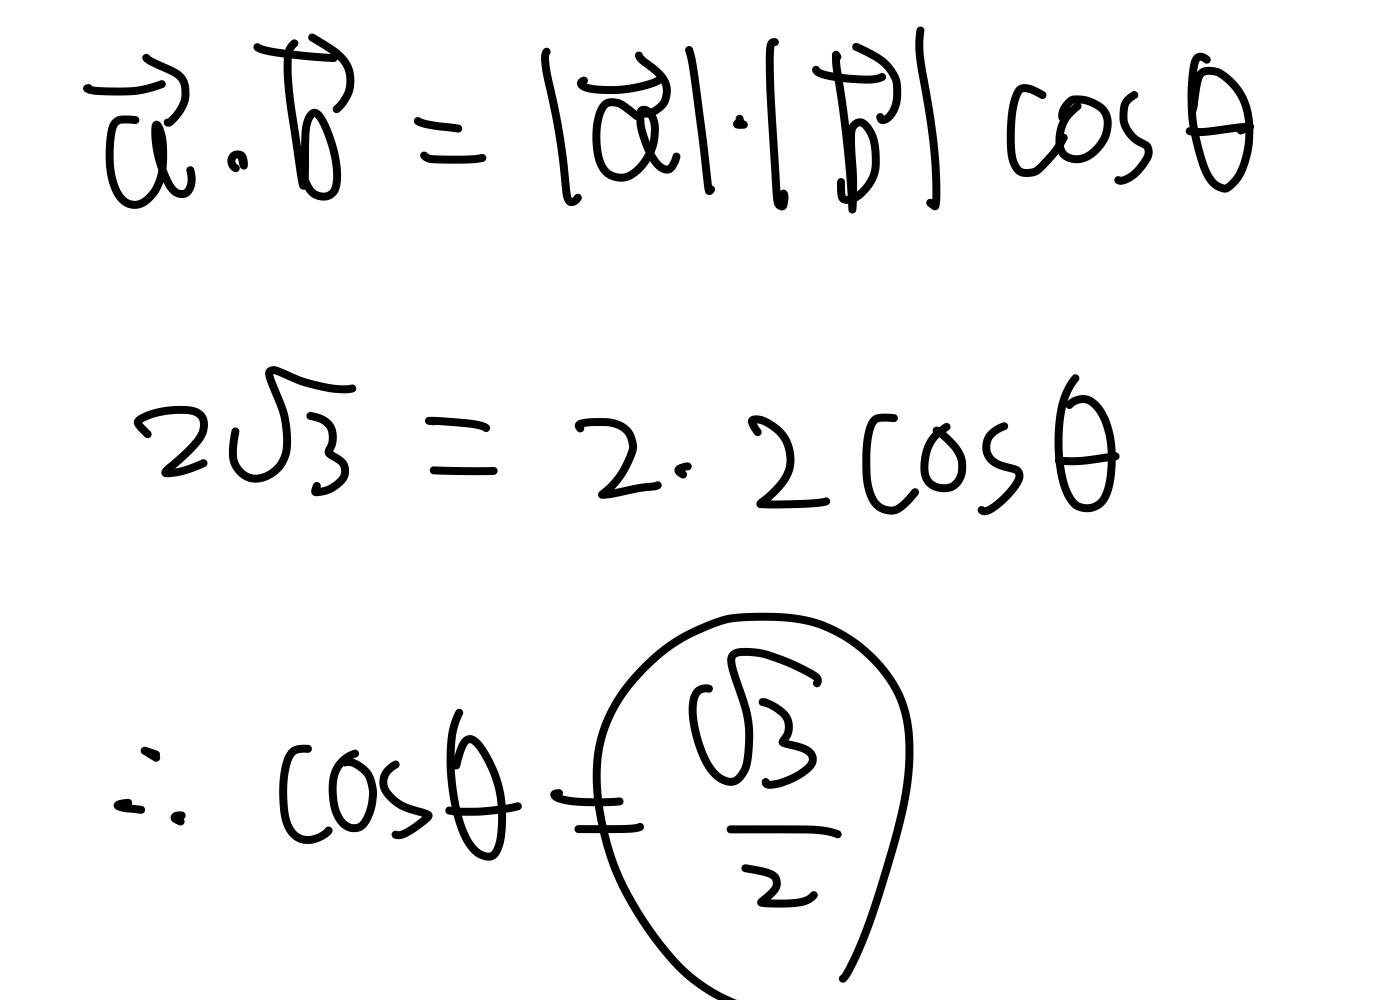 a⃗ · b⃗ = |a⃗| · |b⃗| cos θ
2√3 = 2 · 2 cos θ
∴ cos θ = √3/2